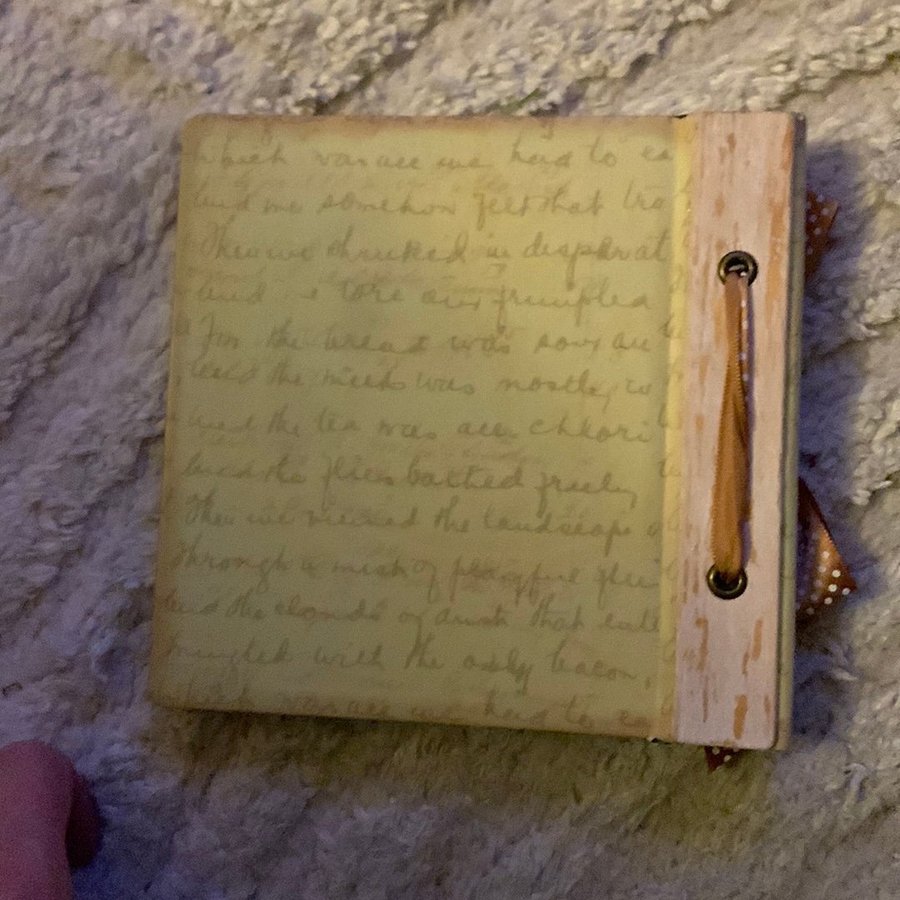 which was all we had to ea
and we somehow felt that tra
Then we shrieked in desparat
and tore our frumpled
For the bread was sour an
and the was mostly w
and the tea was all chlori
and the flies batted freely
Then we viewed the landscape
through a mist of playful flii
and the clouds of dust that
mingled with the oily bacon,
which was all we had to ea